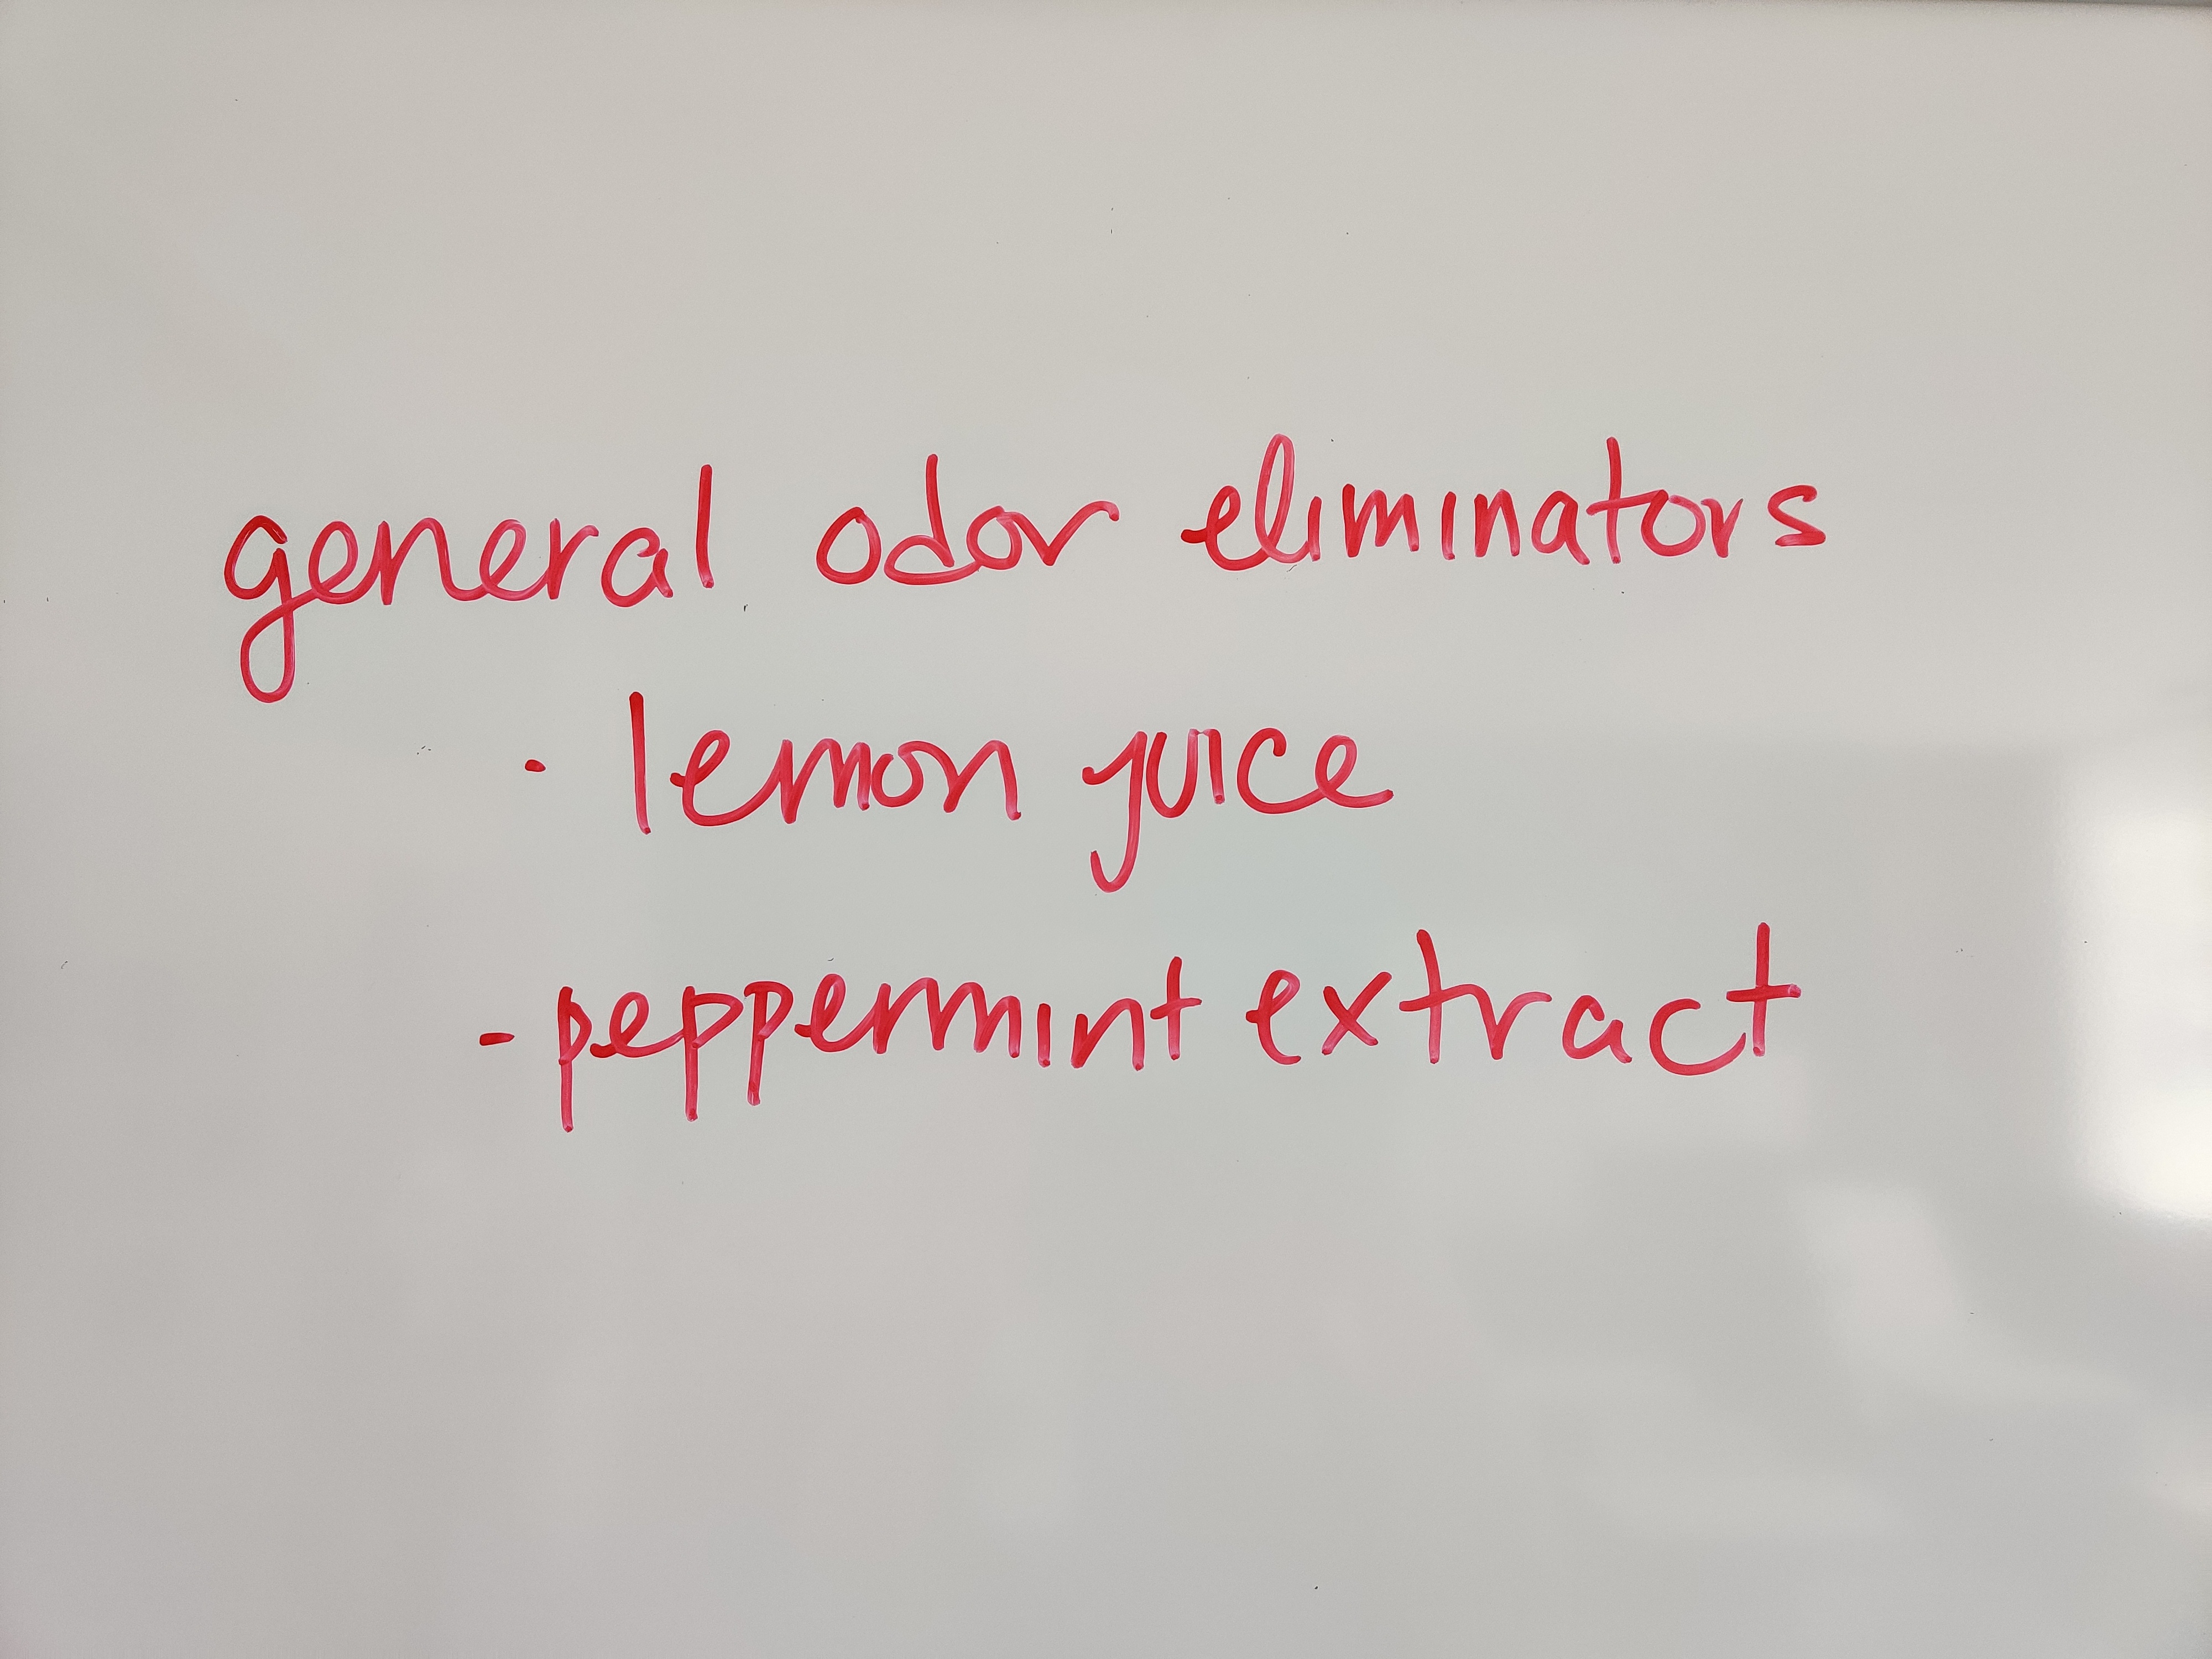 general odor eliminators
- lemon juice
- peppermint extract